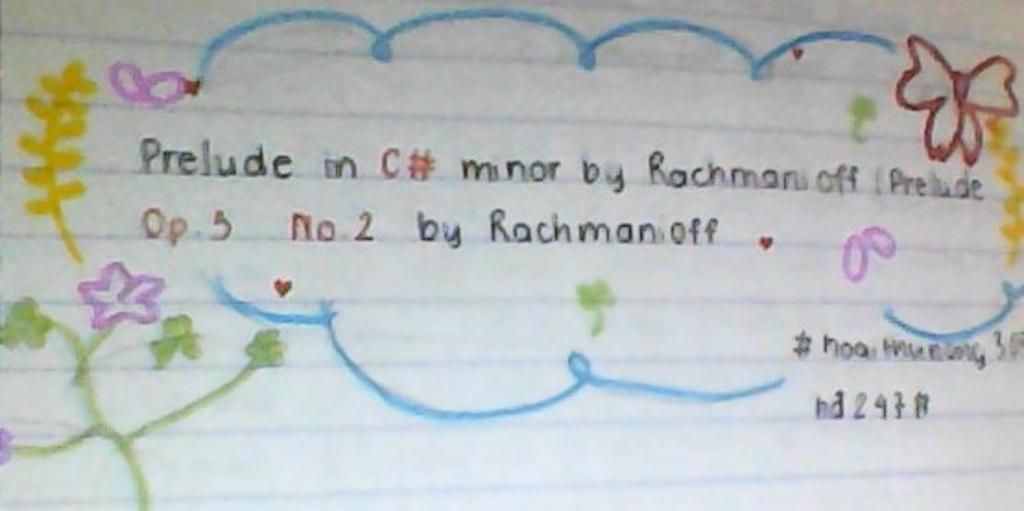 Prelude in C# minor by Rachmaninoff (Prelude
Op.3 No.2 by Rachmaninoff